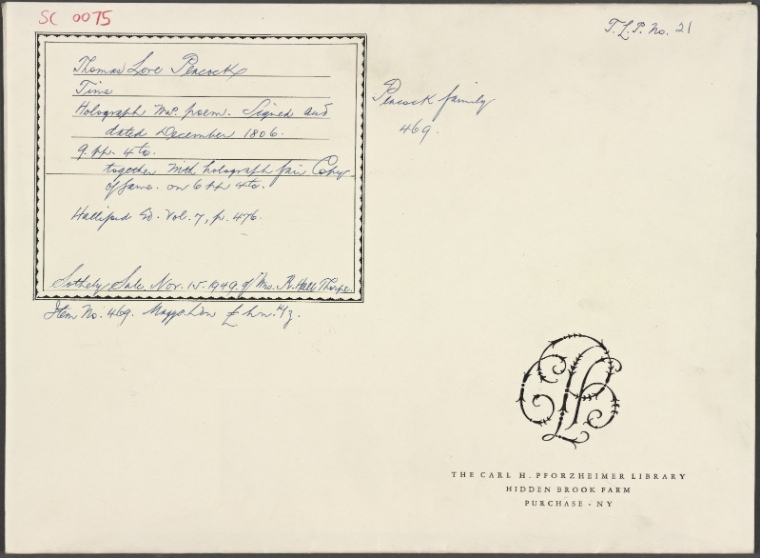 SC 0075
T.L.P. No. 21
Thomas Love Peacock
Time
Holograph Ms. poem. Signed and
dated December 1806.
9. pp. 4to.
together with holograph fair Copy
of same. on 6 pp 4to.
Halliford Ed. Vol. 7, p. 476.
Sotheby Sale Nov. 15. 1949 of Mrs. R. Hall Thorpe
Item No. 469. Maggs
Peacock family
469.
THE CARL H. PFORZHEIMER LIBRARY
HIDDEN BROOK FARM
PURCHASE · NY